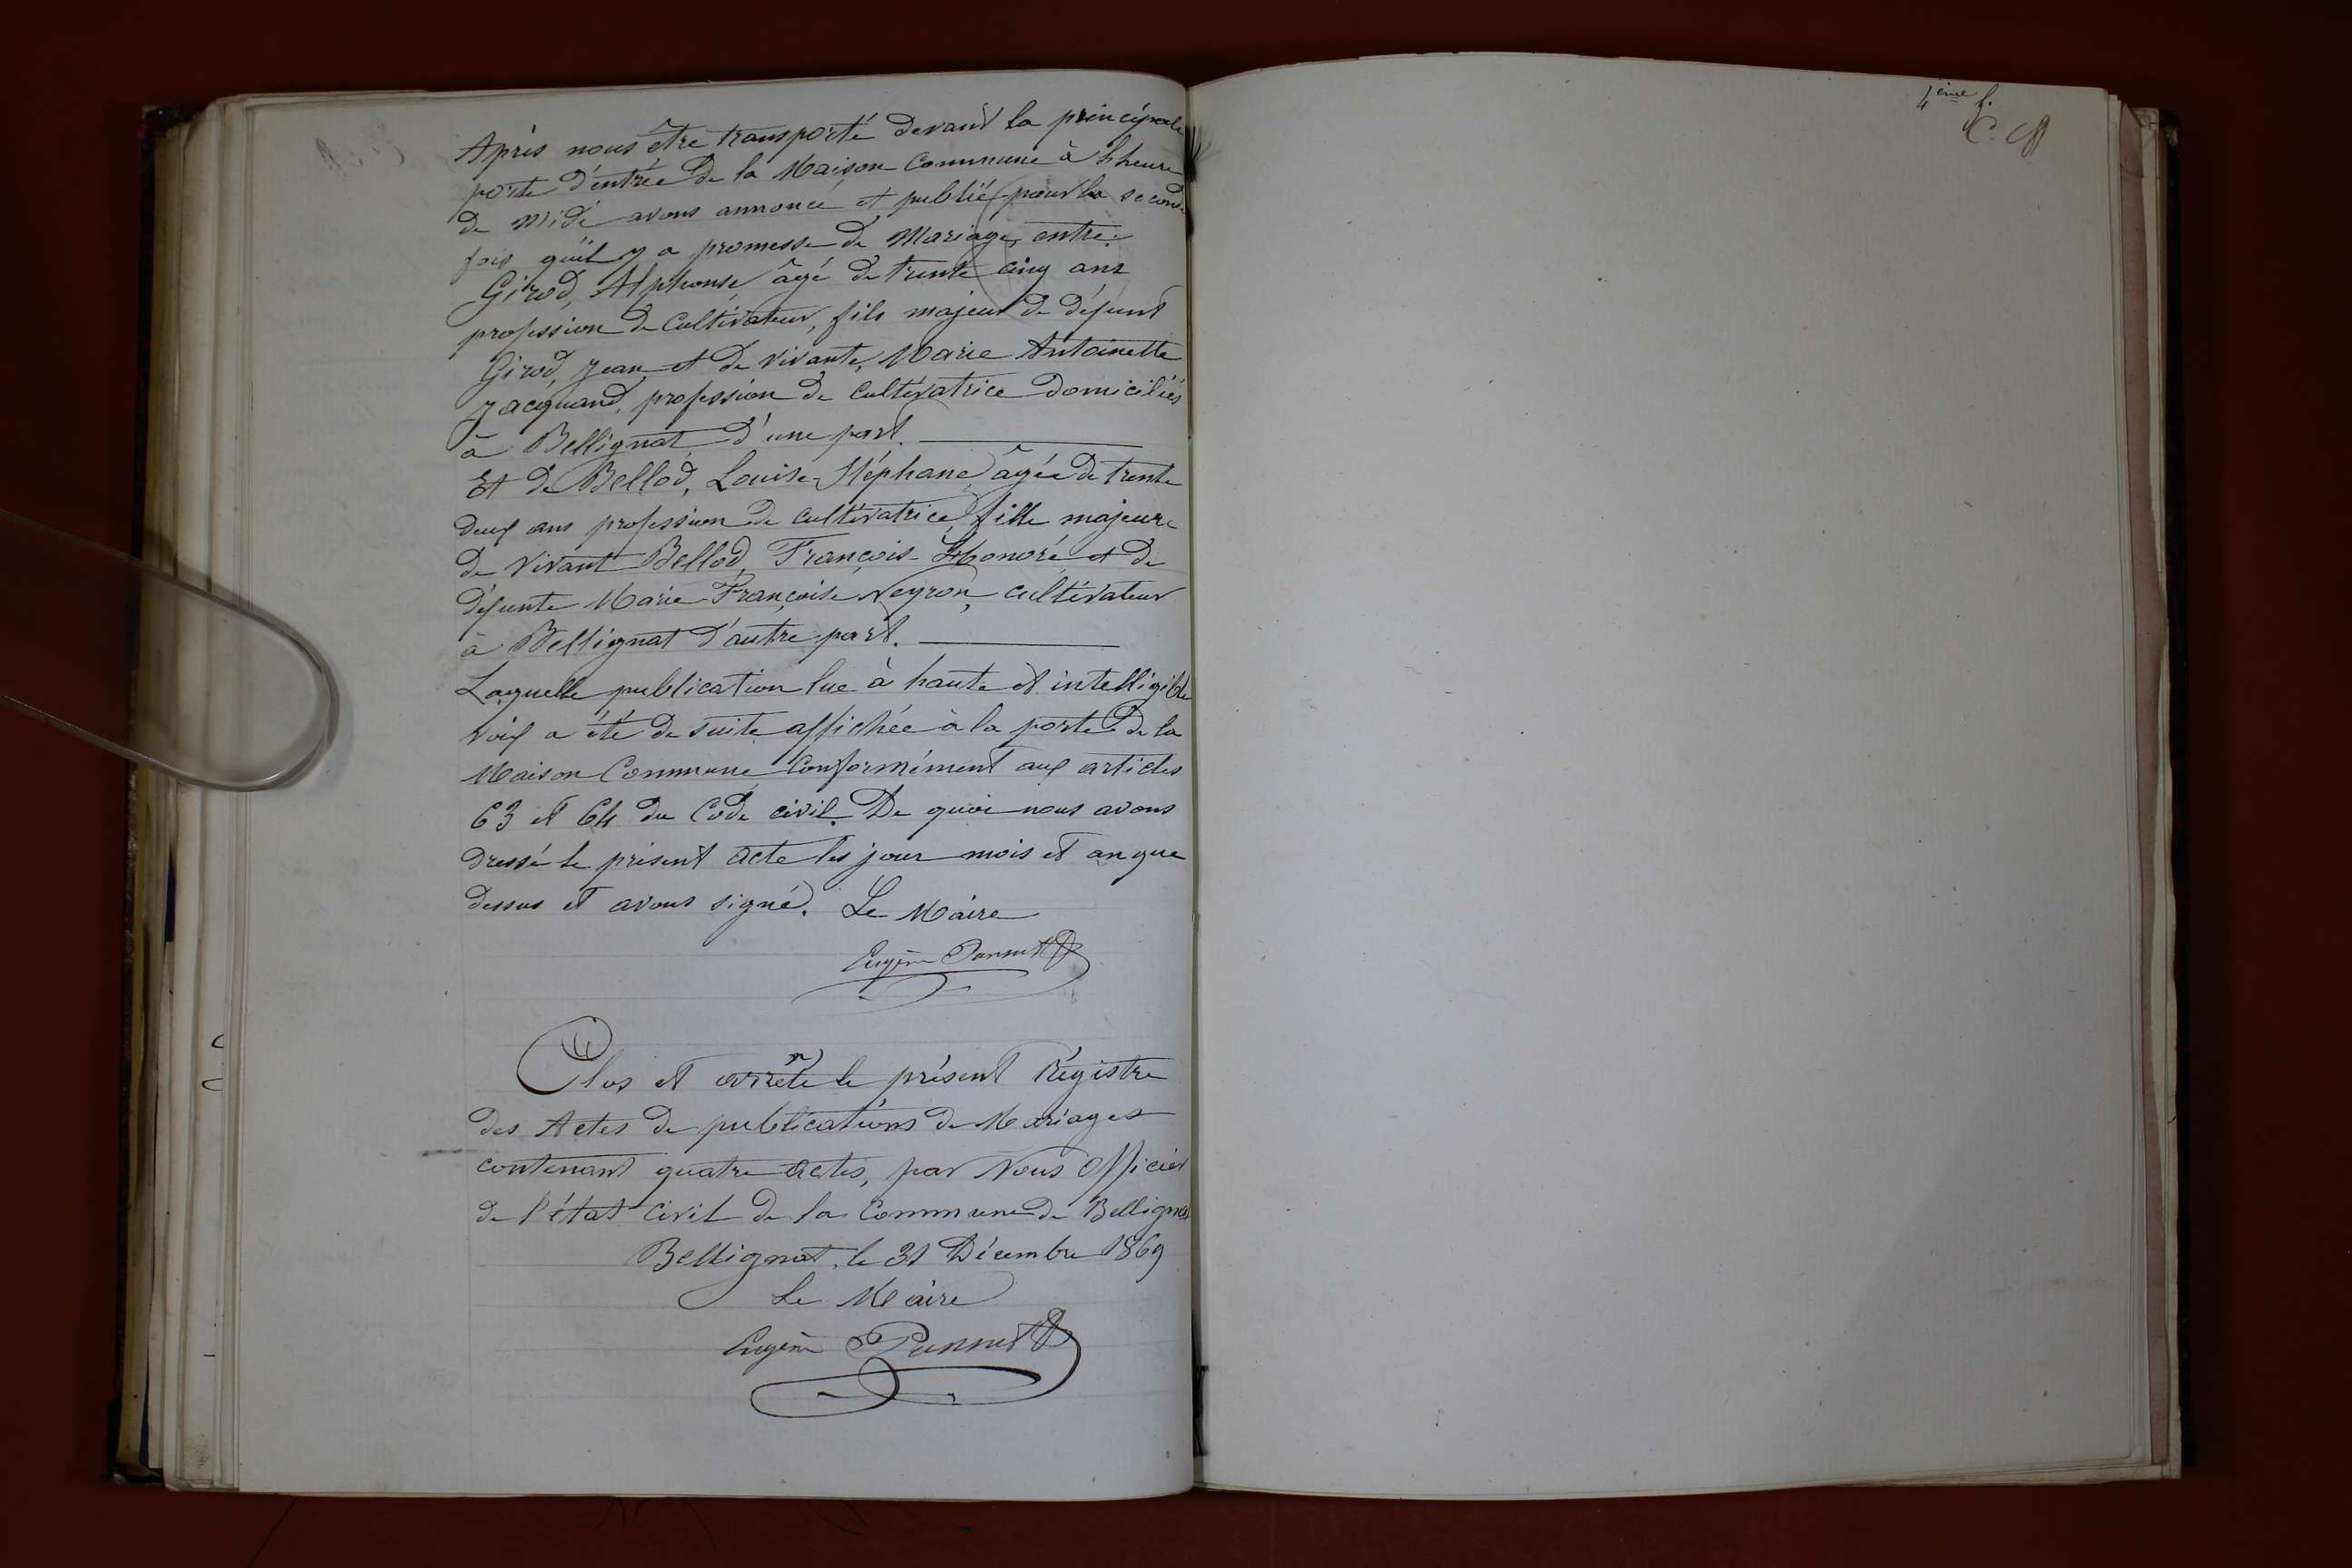 Après nous être transporté devant la principale
porte d'entrée de la Maison Commune à l'heure
de midi avons annoncé et publié pour la seconde
fois qu'il y a promesse de Mariage, entre
Girod, Alphonse, âgé de trente cinq ans
profession de Cultivateur, fils majeur de défunt
Girod, Jean et de vivante, Marie Antoinette
Jacquand, profession de Cultivatrice domiciliés
à Bellignat d'une part.
Et de Bellod, Louise-Stéphane, âgée de trente
deux ans profession de cultivatrice, fille majeure
de vivant Bellod, François-Honoré et de
défunte Marie Françoise Neyron, cultivateur
à Bellignat d'autre part.
Laquelle publication lue à haute et intelligible
voix a été de suite affichée à la porte de la
Maison Commune conformément aux articles
63 et 64 du Code civil. De quoi nous avons
dressé le présent acte les jour mois et an que
dessus et avons signé. Le Maire
Eugène
Clos et arrêté le présent Régistre
des Actes de publications de Mariages
contenant quatre actes, par Nous Officier
de l'état civil de la Commune de Bellignat
Bellignat, le 31 Décembre 1869
Le Maire
Eugène
4ème f.